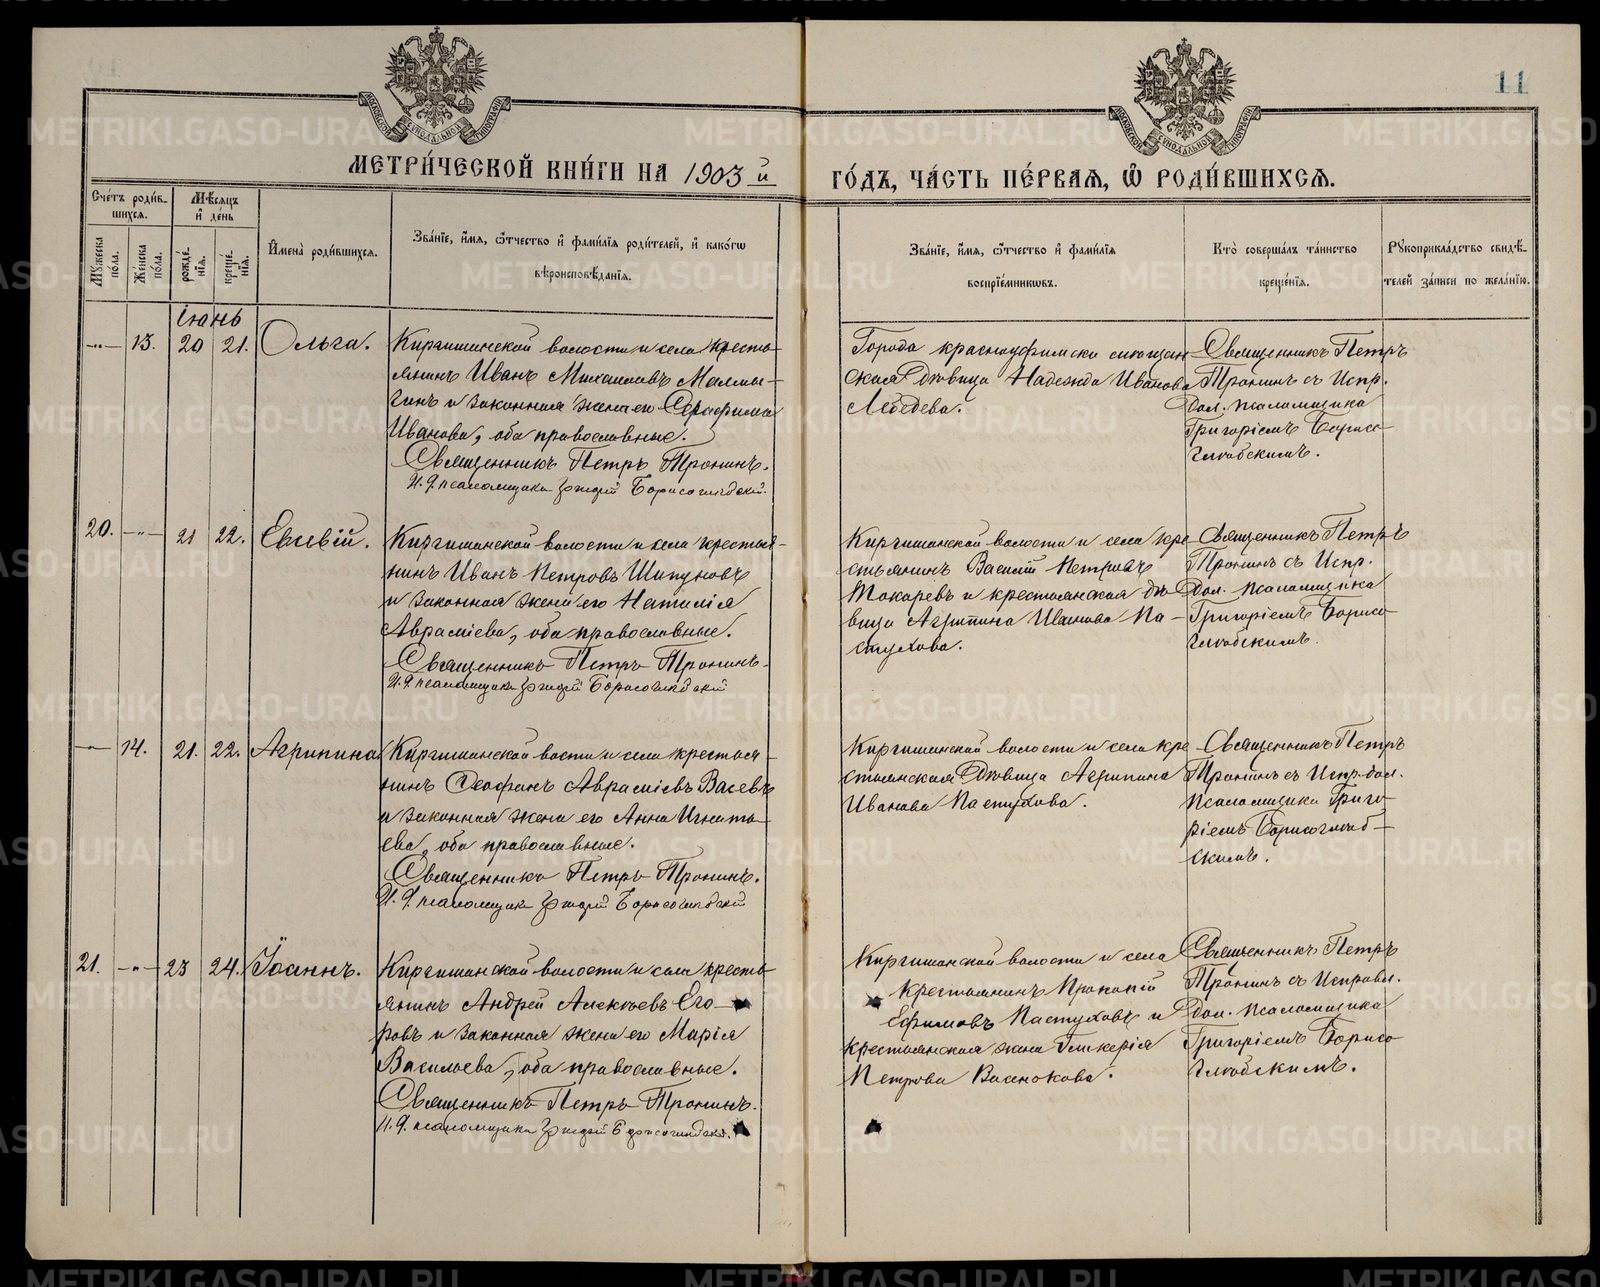 11
МЕТРИ́ЧЕСКОЙ КНИ́ГИ НА 1903 й ГО́ДЪ, ЧА́СТЬ ПЕ́РВАЯ, Ѡ РОДИ́ВШИХСЯ.
Сче́тъ роди́вшихся.
Мꙋ́жеска по́ла.
Же́нска по́ла.
Мѣ́сяцъ и҆ де́нь
рожде́нїя.
креще́нїя.
И҆мена̀ роди́вшихся.
Зва́нїе, и҆́мя, ѻ҆́тчество и҆ фами́лїя роди́телей, и҆ како́гѡ
вѣроисповѣ́данїя.
Зва́нїе, и҆́мя, ѻ҆́тчество и҆ фами́лїя
воспрїе́мникѡвъ.
Кто̀ соверша́лъ та́инство
креще́нїя.
Рꙋкоприкла́дство свидѣ́-
телей за́писи по жела́нїю.
Іюнь
—„— 13. 20 21. Ольга.
Киргишанской волости и села кресть-
янинъ Иванъ Михаиловъ Малмы-
гинъ и законная жена его Серафима
Иванова, оба православные.
Священникъ Петръ Тронинъ.
И. д. псаломщика Григорій Борисоглѣбскій.
Города Красноуфимска мѣщан-
ская дѣвица Надежда Иванова
Лебедева.
Священникъ Петръ
Тронинъ съ Испр.
Дол. псаломщика
Григоріемъ Борисо-
глѣбскимъ.
20. —„— 21 22. Евсевій.
Киргишанской волости и села крестья-
нинъ Иванъ Петровъ Шипуновъ
и законная жена его Наталія
Авраміева, оба православные.
Священникъ Петръ Тронинъ.
И. д. псаломщика Григорій Борисоглѣбскій
Киргишанской волости и села кре-
стьянинъ Василій Петровъ
Токаревъ и крестьянская дѣ-
вица Агрипина Иванова Па-
стухова.
Священникъ Петръ
Тронинъ съ Испр.
Дол. псаломщика
Григоріемъ Борисо-
глѣбскимъ.
—„— 14. 21. 22. Агрипина
Киргишанской вости и села крестья-
нинъ Ѳеофанъ Авраміевъ Васевъ
и законная жена его Анна Игнать-
ева, оба православные.
Священникъ Петръ Тронинъ.
И. д. псаломщика Григорій Борисоглѣбскій
Киргишанской волости и села кре-
стьянская дѣвица Агрипина
Иванова Пастухова.
Священникъ Петръ
Тронинъ съ Испр. дол.
псаломщика Григо-
ріемъ Борисоглѣб-
скимъ.
21. —„— 23 24. Іоаннъ.
Киргишанской волости и села кресть-
янинъ Андрей Алексѣевъ Его-
ровъ и законная жена его Марія
Васильева, оба православные.
Священникъ Петръ Тронинъ.
И. д. псаломщика Григорій Борисоглѣбскій.
Киргишанской волости и села
крестьянинъ Прокопій
Ефимовъ Пастуховъ и
крестьянская жена Гликерія
Петрова
Священникъ Петръ
Тронинъ съ Исправл.
дол. псаломщика
Григоріемъ Борисо-
глѣбскимъ.
METRIKI.GASO-URAL.RU